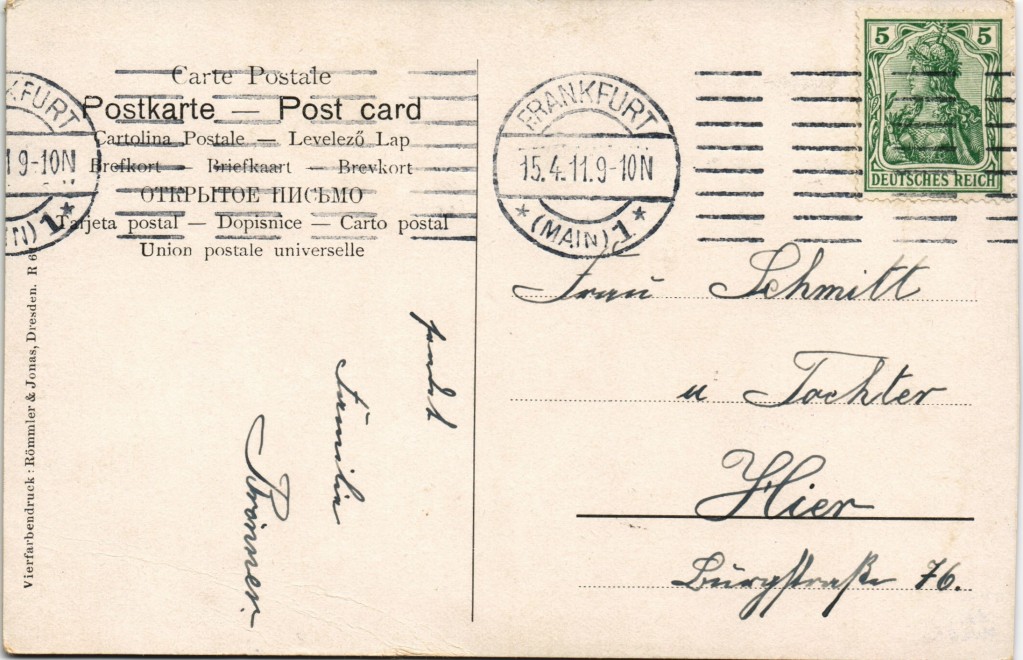 Carte Postale
Postkarte — Post card
Cartolina Postale — Levelező Lap
Brefkort — Briefkaart — Brevkort
ОТКРЫТОЕ ПИСЬМО
Tarjeta postal — Dopisnice — Carto postal
Union postale universelle
KFURT
1 9-10N
IN) 1 *
Vierfarbendruck: Römmler & Jonas, Dresden. R 6
sendet
Familie
FRANKFURT
15.4.11.9-10N
* (MAIN) 1 *
5 5
DEUTSCHES REICH
Frau Schmitt
u Tochter
Hier
Burgstraße 76.